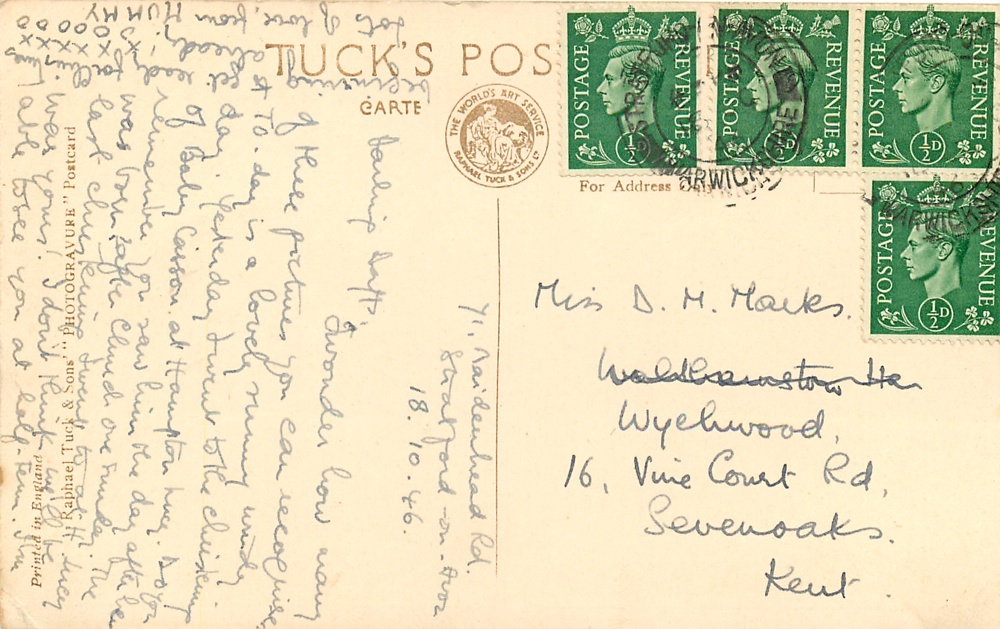 TUCK'S POS
CARTE
THE WORLD'S ART SERVICE
RAPHAEL TUCK & SONS LTD
For Address
POSTAGE REVENUE
½D
POSTAGE REVENUE
½D
POSTAGE REVENUE
½D
POSTAGE REVENUE
½D
WARWICKSHIRE
WARWICKSHIRE
Miss D. M. Marks.
Walthamstow Ha
Wychwood,
16, Vine Court Rd,
Sevenoaks.
Kent.
71, Maidenhead Rd.
Stratford-on-Avon
18.10.46.
Darling
I wonder how many
of these pictures you can recognise,
To-day is a lovely sunny windy
day. Yesterday I went to the christening
of Baby Casson at Hampton Lucy. Do you
remember you saw him the day after he
was born, after Church one Sunday. The
last christening I went to at H. Lucy
was yours! I don't think we'll be
able to see you at half-term. I'm
beginning
to
get ready for
already.
lots
of love, from MUMMY
xox
oxox
Printed in England
"Raphael Tuck & Sons' "PHOTOGRAVURE" Postcard